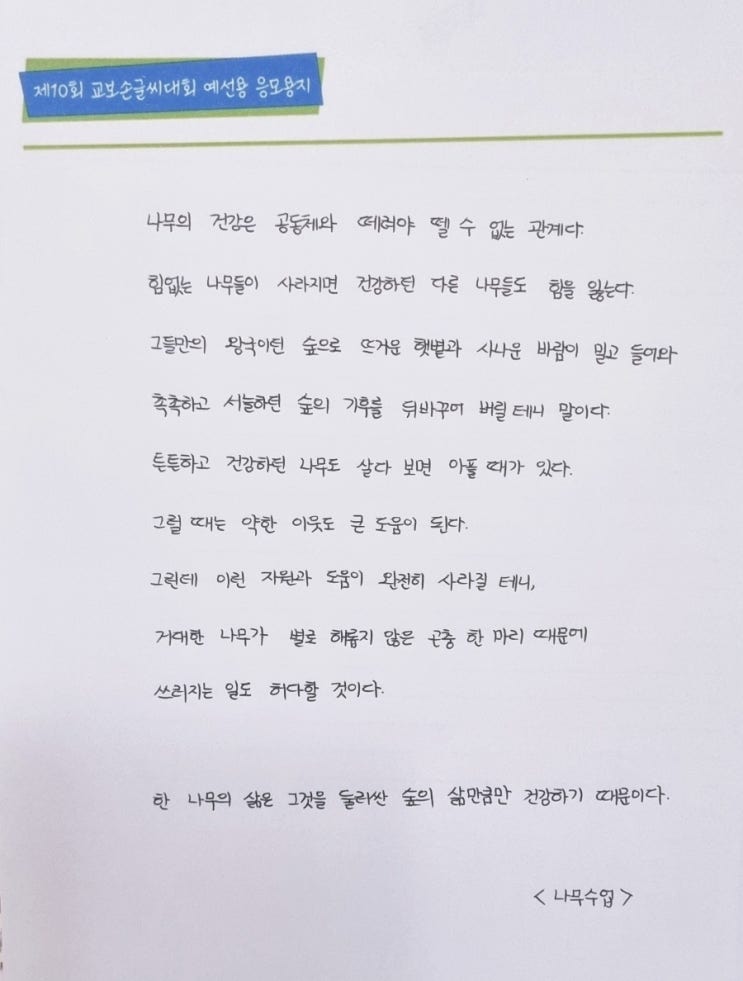 제10회 교보손글씨대회 예선용 응모용지
나무의 건강은 공동체와 떼려야 뗄 수 없는 관계다.
힘없는 나무들이 사라지면 건강하던 다른 나무들도 힘을 잃는다.
그들만의 왕국이던 숲으로 뜨거운 햇볕과 사나운 바람이 밀고 들어와
촉촉하고 서늘하던 숲의 기후를 뒤바꾸어 버릴 테니 말이다.
튼튼하고 건강하던 나무도 살다 보면 아플 때가 있다.
그럴 때는 약한 이웃도 큰 도움이 된다.
그런데 이런 자원과 도움이 완전히 사라질 테니,
거대한 나무가 별로 해롭지 않은 곤충 한 마리 때문에
쓰러지는 일도 허다할 것이다.
한 나무의 삶은 그것을 둘러싼 숲의 삶만큼만 건강하기 때문이다.
< 나무수업 >